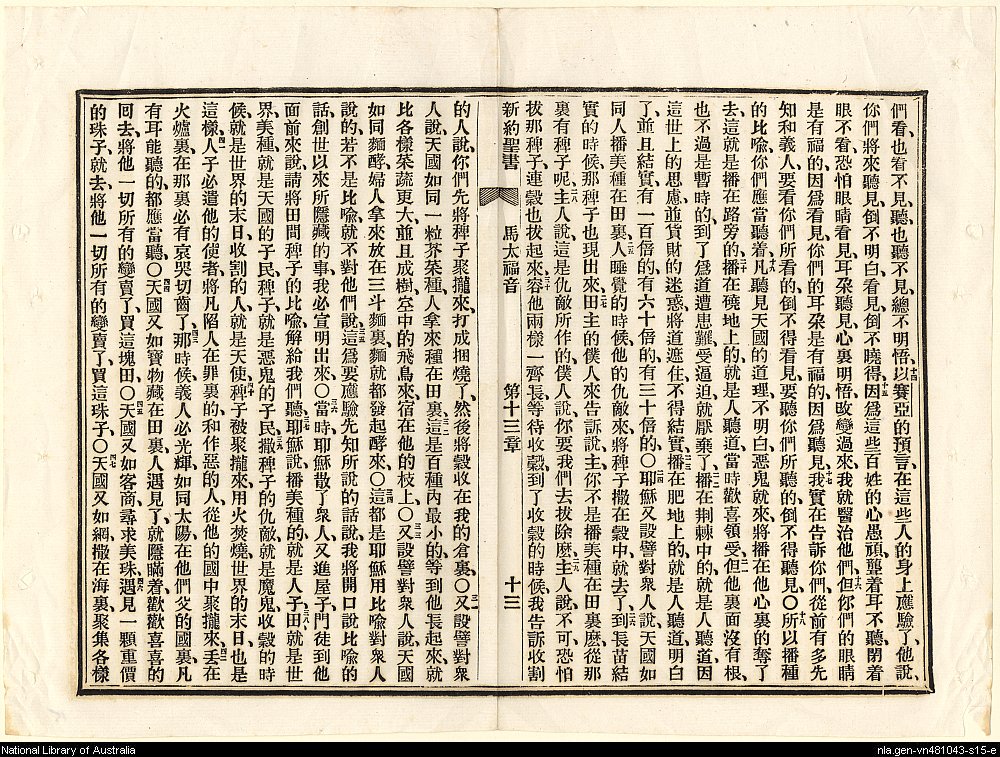 們看、也看不見、聽也聽不見、總不明悟、十四以賽亞的預言、在這些人的身上應驗了、他說、
你們將來聽見、倒不明白、看見、倒不曉得、十五因爲這些百姓的心愚頑、聾着耳不聽、閉着
眼不看、恐怕眼睛看見、耳朶聽見、心裏明悟、改變過來、我就醫治他們、十六但你們的眼睛
是有福的、因爲看見、你們的耳朶是有福的、因爲聽見、十七我實在告訴你們、從前有多先
知和義人、要看你們所看的、倒不得看見、要聽你們所聽的、倒不得聽見、〇十八所以播種
的比喻、你們應當聽着、十九凡聽見天國的道理不明白、惡鬼就來、將播在他心裏的奪了
去、這就是播在路旁的、二十播在磽地上的、就是人聽道、當時歡喜領受、二一但他裏面沒有根、
也不過是暫時的、到了爲道遭患難受逼迫、就厭棄了、二二播在荆棘中的、就是人聽道、因
這世上的思慮、並貨財的迷惑、將道遮住、不得結實、二三播在肥地上的、就是人聽道明白
了、並且結實、有一百倍的、有六十倍的、有三十倍的、〇二四耶穌又設譬對衆人說、天國如
同人播美種在田裏、二五人睡覺的時候、他的仇敵來、將稗子撒在穀中、就去了、二六到長苗結
實的時候、那稗子也現出來、二七田主的僕人來告訴說、主、你不是播美種在田裏麽、從那
裏有稗子呢、二八主人說、這是仇敵所作的、僕人說、你要我們去拔除麽、二九主人說、不可、恐怕
拔那稗子、連穀也拔起來、三十容他兩樣一齊長、等待收穀、到了收穀的時候、我告訴收割
新約聖書 馬太福音 第十三章 十三
的人說、你們先將稗子聚攏來、打成捆燒了、然後將穀收在我的倉裏、〇三一又設譬對衆
人說、天國如同一粒芥菜種、人拿來種在田裏、三二這是百種內最小的、等到他長起來、就
比各樣菜蔬更大、並且成樹、空中的飛鳥來宿在他的枝上、〇三三又設譬對衆人說、天國
如同麵酵、婦人拿來放在三斗麵裏、麵就都發起酵來、〇三四這都是耶穌用比喻對衆人
說的、若不是比喻、就不對他們說、三五這爲要應驗先知所說的話說、我將開口說比喻的
話、創世以來所隱藏的事、我必宣明出來、〇三六當時耶穌散了衆人、又進屋子、門徒到他
面前來說、請將田間稗子的比喻解給我們聽、三七耶穌說、播美種的就是人子、三八田就是世
界、美種就是天國的子民、稗子就是惡鬼的子民、三九撒稗子的仇敵就是魔鬼、收穀的時
候、就是世界的末日、收割的人、就是天使、四十稗子被聚攏來用火焚燒、世界的末日、也是
這樣、四一人子必遣他的使者、將凡陷人在罪裏的和作惡的人、從他的國中聚攏來、四二丟在
火爐裏、在那裏必有哀哭切齒了、四三那時候義人必光輝、如同太陽在他們父的國裏、凡
有耳能聽的、都應當聽、〇四四天國又如寶物藏在田裏、人遇見了、就隱瞞着、歡歡喜喜的
回去、將他一切所有的變賣了、買這塊田、〇四五天國又如客商尋求美珠、四六遇見一顆重價
的珠子、就去、將他一切所有的變賣了、買這珠子、〇四七天國又如網撒在海裏、聚集各樣
National Library of Australia
nla.gen-vn481043-s15-e